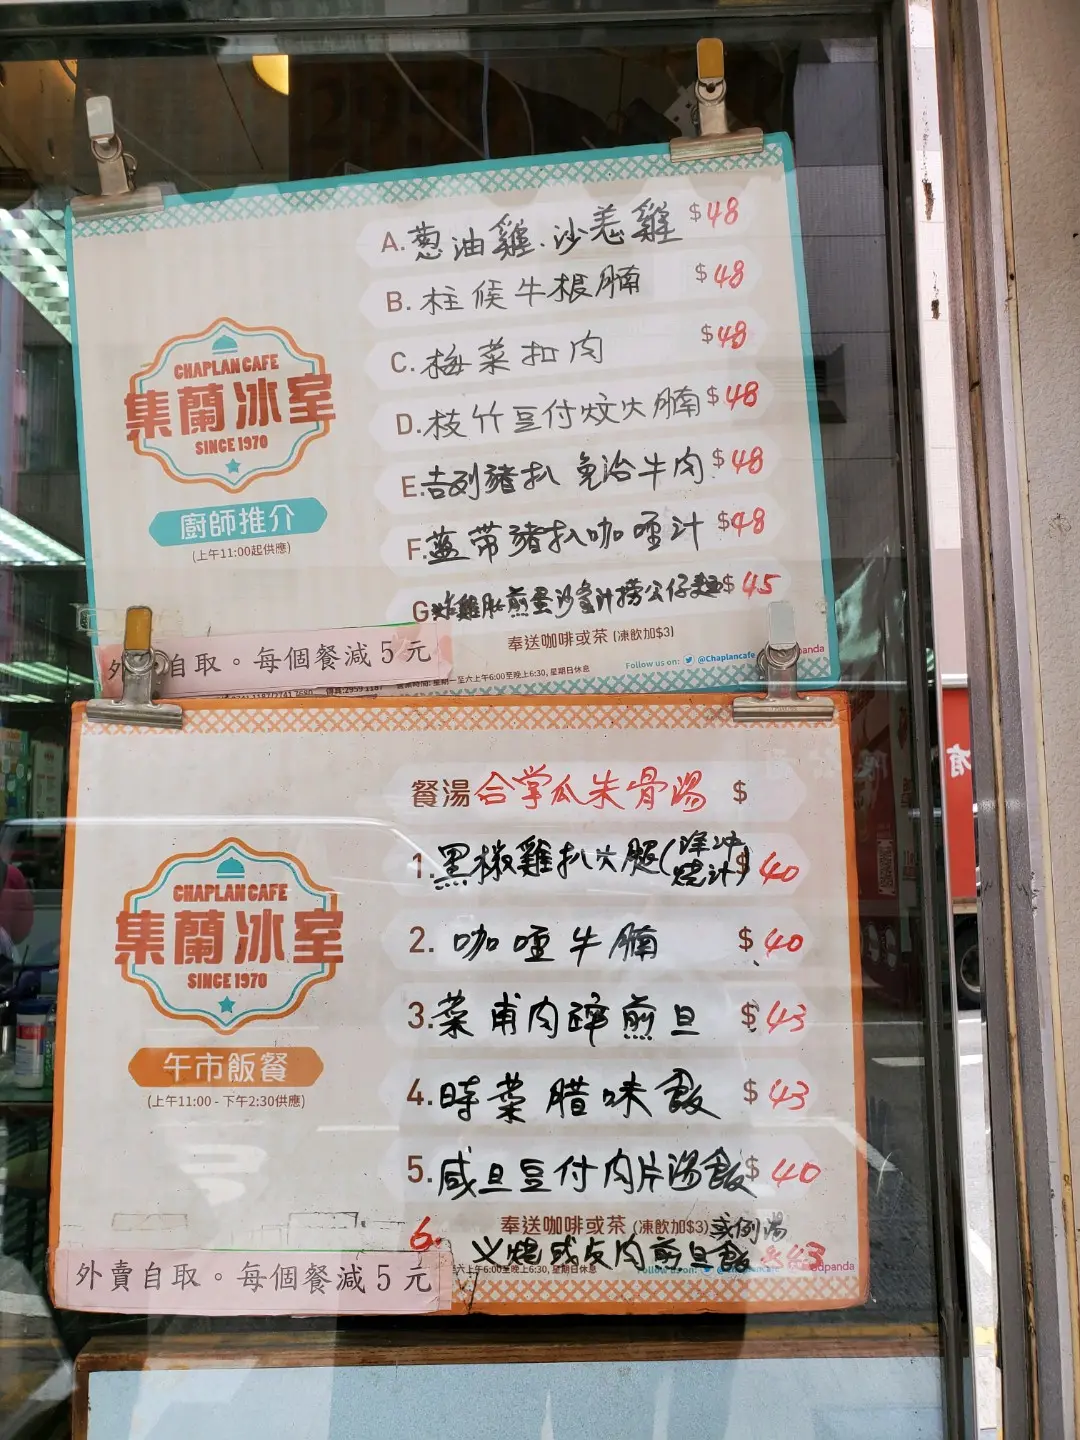 CHAPLAN CAFE
集蘭冰室
SINCE 1970
廚師推介
(上午11:00起供應)
A.葱油雞.沙羌雞 $48
B.柱候牛根腩 $48
C.梅菜扣肉 $48
D.枝竹豆付炆火腩 $48
E.吉列豬扒 免治牛肉 $48
F.薑蓉豬扒咖喱汁 $48
G炸雞肶煎蛋沙爹汁撈公仔麵$45
奉送咖啡或茶 (凍飲加$3)
Follow us on: @Chaplancafe
panda
外 自取。每個餐減5元
星期一至六上午6:00至晚上6:30, 星期日休息
餐湯 合掌瓜朱骨湯 $
CHAPLAN CAFE
集蘭冰室
SINCE 1970
午市飯餐
(上午11:00 - 下午2:30供應)
1.黑椒雞扒火腿(洋冲燒汁)$40
2. 咖喱牛腩 $40
3.菜甫肉碎煎旦 $43
4.時菜腊味飯 $43
5.咸旦豆付肉片湯飯$40
奉送咖啡或茶 (凍飲加$3)或例湯
6. 义燒或反肉煎旦飯 $43
外賣自取。每個餐減5元
六上午6:00至晚上6:30, 星期日休息
Follow us on:
panda
有